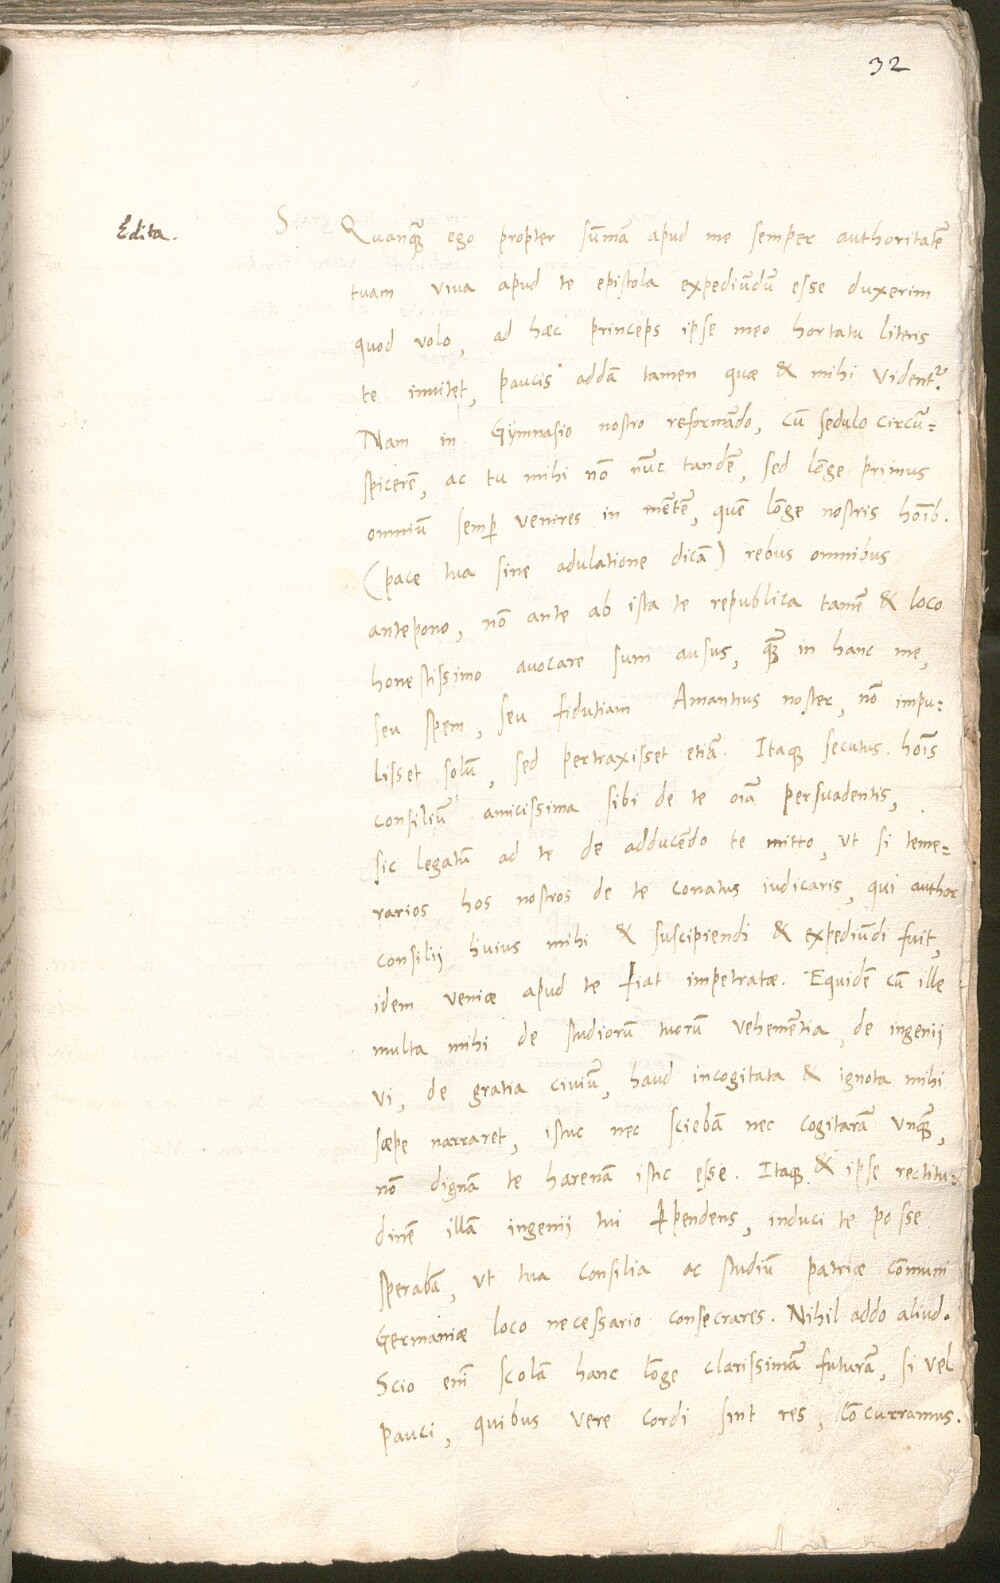 32
Edita.
S. Quanꝗ̃ ego propter sum̄a apud me semper authoritatē
tuam viva apud te epistola expediūdū esse duxerim
quod volo, ad hæc princeps ipse meo hortatu literis
te invitet, paucis addā tamen quæ & mihi vident̃.
Nam in Gymnasio nostro reformādo, cū sedulo circū=
spicerē, ac tu mihi nō nūc tandē, sed lōge primus
omniū semp̄ venires in mētē, quē lōge nostris hoīb.
(pace tua sine adulatione dicā) rebus omnibus
antepono, nō ante ab ista te republica tamē & loco
honestissimo avocare sum ausus, ꝗ̃ in hanc me,
seu spem, seu fidutiam Amantius noster, nō impu=
lisset solū, sed pertraxisset etiā. Itaqꝫ secutus hoīs
consiliū amicissima sibi de te oīa persuadentis,
sic legatū ad te de adducēdo te mitto, vt si teme=
rarios hos nostros de te conatus iudicaris, qui author
consilij huius mihi & suscipiendi & expediūdi fuit,
idem veniæ apud te fiat impetratæ. Equidē cū ille
multa mihi de studiorū tuorū vehemētia, de ingenij
vi, de gratia civiū, haud incogitata & ignota mihi
sæpe narraret, istuc nec sciebā nec cogitarā vnꝗ̃,
nō dignā te harenā istic esse. Itaqꝫ & ipse rectitu=
dinē illā ingenij tui ꝑpendens, induci te posse
sperabā, vt tua consilia ac studiū patriæ cōmuni
Germaniæ loco necessario consecrares. Nihil addo aliud.
Scio enī scolā hanc lōge clarissimā futurā, si vel
pauci, quibus vere cordi sint res, cōcurramus.